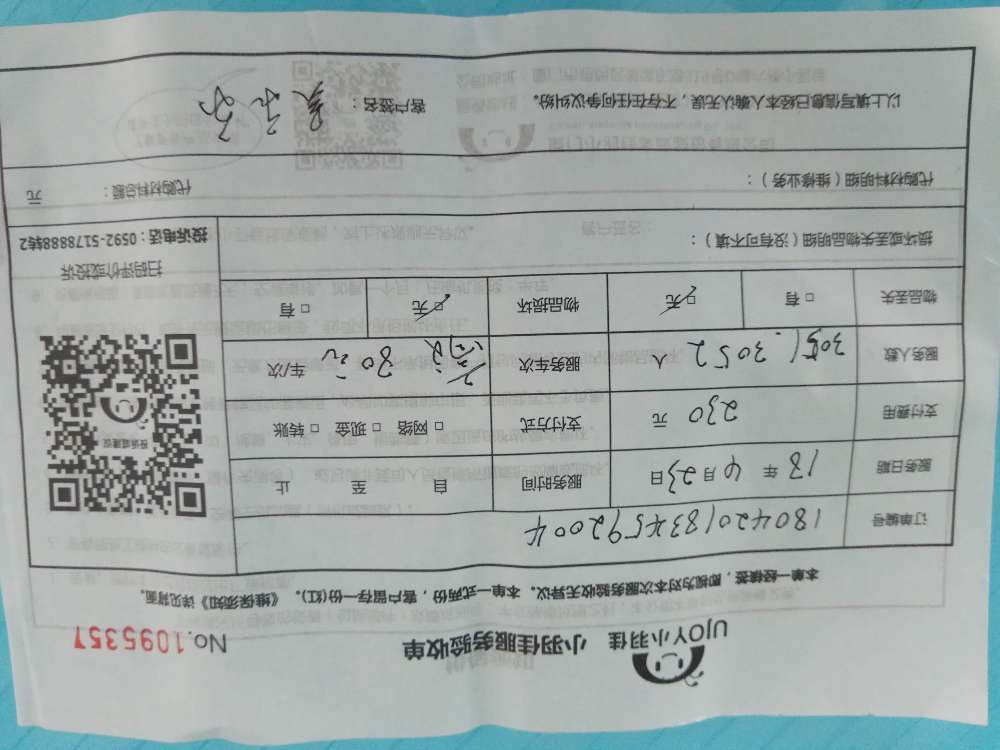 UJOY小羽佳 小羽佳服务验收单 No.1095357
本单一经续签,即视为对本次服务验收无异议。本单一式两份,客户留存一份(红)。《维保须知》详见背面。
订单编号 1804201834592004
服务日期 18年4月23日 服务时间 自 至 止
支付费用 230元 支付方式 □网络 □现金 □转账
服务人数 3051.3052人 服务车次 30元 车/次
物品丢失 □有 □无 物品损坏 □无 □有
扫码评价或投诉
投诉电话:0592-5178888转2
损坏或丢失物品明细(没有可不填):
代购材料明细(维修业务): 代购材料总额: 元
以上填写信息已经本人确认无误,不存在任何争议纠纷。 客户签名: